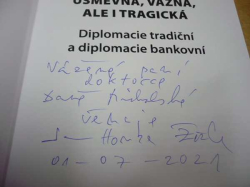 ÚSMĚVNÁ, VÁŽNÁ,
ALE I TRAGICKÁ
Diplomacie tradiční
a diplomacie bankovní
Vážené paní
doktorce
věnuje
01-07-2021